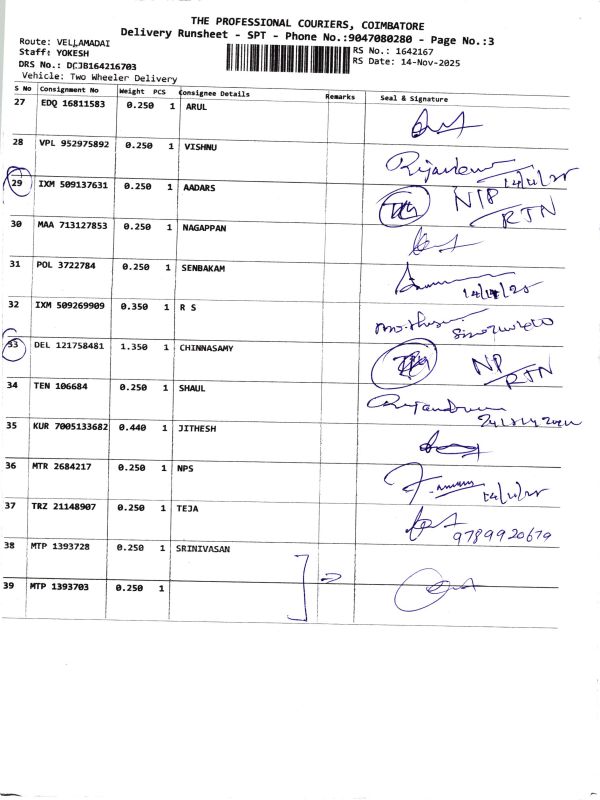 THE PROFESSIONAL COURIERS, COIMBATORE
Delivery Runsheet - SPT - Phone No.:9047080280 - Page No.:3
Route: VELLAMADAI
Staff: YOKESH
RS No.: 1642167
DRS No.: DCJB164216703
RS Date: 14-Nov-2025
Vehicle: Two Wheeler Delivery
S No Consignment No Weight PCS Consignee Details Remarks Seal & Signature
27 EDQ 16811583 0.250 1 ARUL
28 VPL 952975892 0.250 1 VISHNU
14/11/25
29 IXM 509137631 0.250 1 AADARS N/P
RTN
30 MAA 713127853 0.250 1 NAGAPPAN
31 POL 3722784 0.250 1 SENBAKAM
14/11/25
32 IXM 509269909 0.350 1 R S
33 DEL 121758481 1.350 1 CHINNASAMY NP
RTN
34 TEN 106684 0.250 1 SHAUL
35 KUR 7005133682 0.440 1 JITHESH
36 MTR 2684217 0.250 1 NPS
14/11/25
37 TRZ 21148907 0.250 1 TEJA
9789920679
38 MTP 1393728 0.250 1 SRINIVASAN
39 MTP 1393703 0.250 1